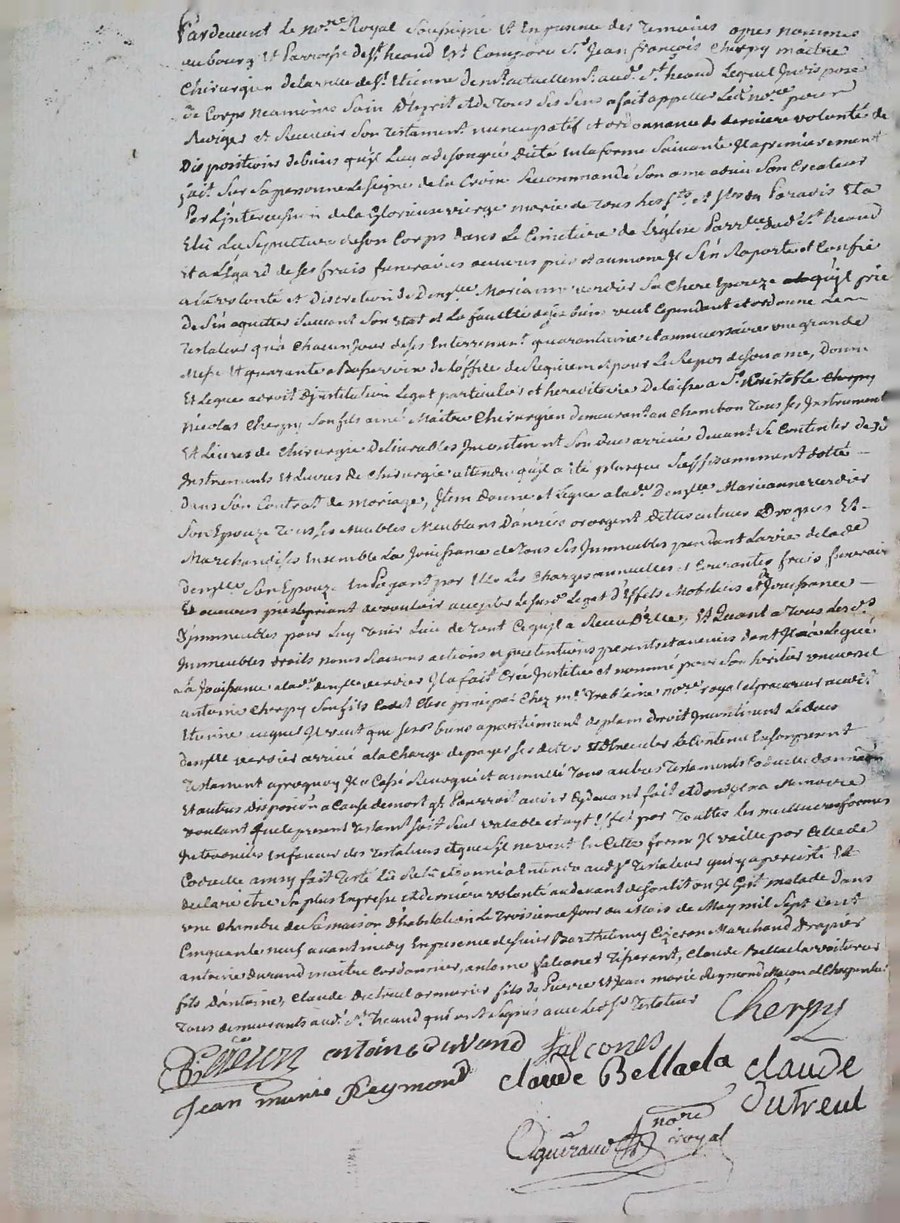 Pardevant le no.re Royal Soussigné Et En presence des Temoins apres nommés
au bourg Et Parroisse de St heand Est Comparu Sr Jean françois Cherpy maitre
Chirurgien de la ville de St Etienne de nst actuellemt. aud. St heand Lequel Indisposé
de Corps neamoins Sain D'Esprit et de Tous Ses Sens a fait appeller Led. no.re pour
Rediger Et Recevoir Son Testament nuncupatif et ordonnance de derniere volonté de
Dispositions de biens qu'il Luy a de Son gré Dicté en la forme Suivante Il a premierement
fait Sur Sa personne Le Signe de la Croix Recommandé Son ame a dieu Son Createur
Par L'intercession de la Glorieuse vierge marie de Tous les Sts et Stes du Paradis Et a
Elu La Sepulture de Son Corps dans Le Cimetiere de L'eglise Parr.lle dud. St heand
Et a L'Egard de Ses frais funeraires oeuvres pies et aumone Il S'en Raporte et Confie
a la volonté et Discretion de Dem.lle Marianne verdier Sa Chere Epouze qu'il prie
de S'en aquitter Suivant Son Etat et La faculté de Ses biens veut Cependant et ordonne Le
Testateur qu'a Chacun Jour de Ses Enterrement quarantaine et anniversaire une grande
Messe Et quarante a Basse voix de L'office de Requiem Soit pour Le Repos de Son ame, Donne
Et Legue a droit D'institution Legat particulier et hereditaire Delaisse a Sr Cristofle Cherpy
nicolas Cherpy Son fils ainé Maitre Chirurgien demeurant au Chambon Tous Ses Instrument
Et Livres de Chirurgie Delivrables Incontinent Son deces arrivée devant Se Contenter desd.
Instruments Et Livres de Chirurgie attendu qu'il a été plus que Suffisamment dotté
dans Son Contrat de mariage, Item donne et Legue a lade. Dem.lle Marianne verdier
Son Epouze Tous Ses Meubles Meublans Danrées or argent Dettes actives Drogues Et
Marchandises Ensemble La Jouissance de Tous Ses Immeubles pendant La vie de lade
dem.lle Son Epouze En Payant par Elle Les Charges annuelles et Courantes frais funerair
Et oeuvres pies La priant de vouloir accepter Le Susd. Legat D'Effets Mobiliers et Jouissance
D'Immeubles pour Luy Tenir Lieu de Tout Ce qu'il a Receu D'Elle, Et Quant a Tous Les ds
Immeubles droits noms Raisons actions et pretentions presents et avenirs dont Il a Legué
La Jouissance a lade. dem.lle verdier Il a fait Crée Institué et nommé pour Son heritier universel
antoine Cherpy Son fils Cadet Clerc principal Chez me Trablaine no.re royal et procureur aud. St
Etienne auquel Il veut que Sesd. biens apartiennent de plein Droit Incontinent Le deces
dem.lle verdier arrivé a la Charge de payer Ses dettes Et D'Executer Le Contenu En Son present
Testament apres quoy Il a Cassé Revoqué et annullé Tous autres Testaments Codicille donnation
Et autres disposion a Cause de mort q'il Pourroit avoir Cy devant fait et dont Il n'a Memoire
voulant Que le present Testamt. Soit Seul valable et ayt Effet par Touttes les meilleures formes
Introduites en faveur des Testateurs et que S'il ne veut En Cette forme Il vaille par Celle de
Codicille ainsy fait Testé Lû Relû et donné a Entendre audt. Sr Testateur qui y a persisté Et
declaré être Sa plus Expresse et derniere volonté audevant de Son lit ou Il Git malade dans
une Chambre de Sa maison D'habitation Le Troisieme Jour du Mois de May mil Sept Cent
Cinquante neuf avant midy En presence de Sieur Barthelemy Marchand Drapier
antoine Durand maitre Cordonnier, antoine falconet Tisserant, Claude Bellacla voiturier
fils D'antoine, Claude Dutreul armurier fils de Pierre Et Jean marie Reymond Macon et Charpentier
Tous demeurants aud. St. heand qui ont Signés avec Ledt. Sr Testateur
Cherpy
antoine durand falconet
Jean marie Reymond Claude Bellacla Claude
Dutreul
Aguiraud no.re
royal